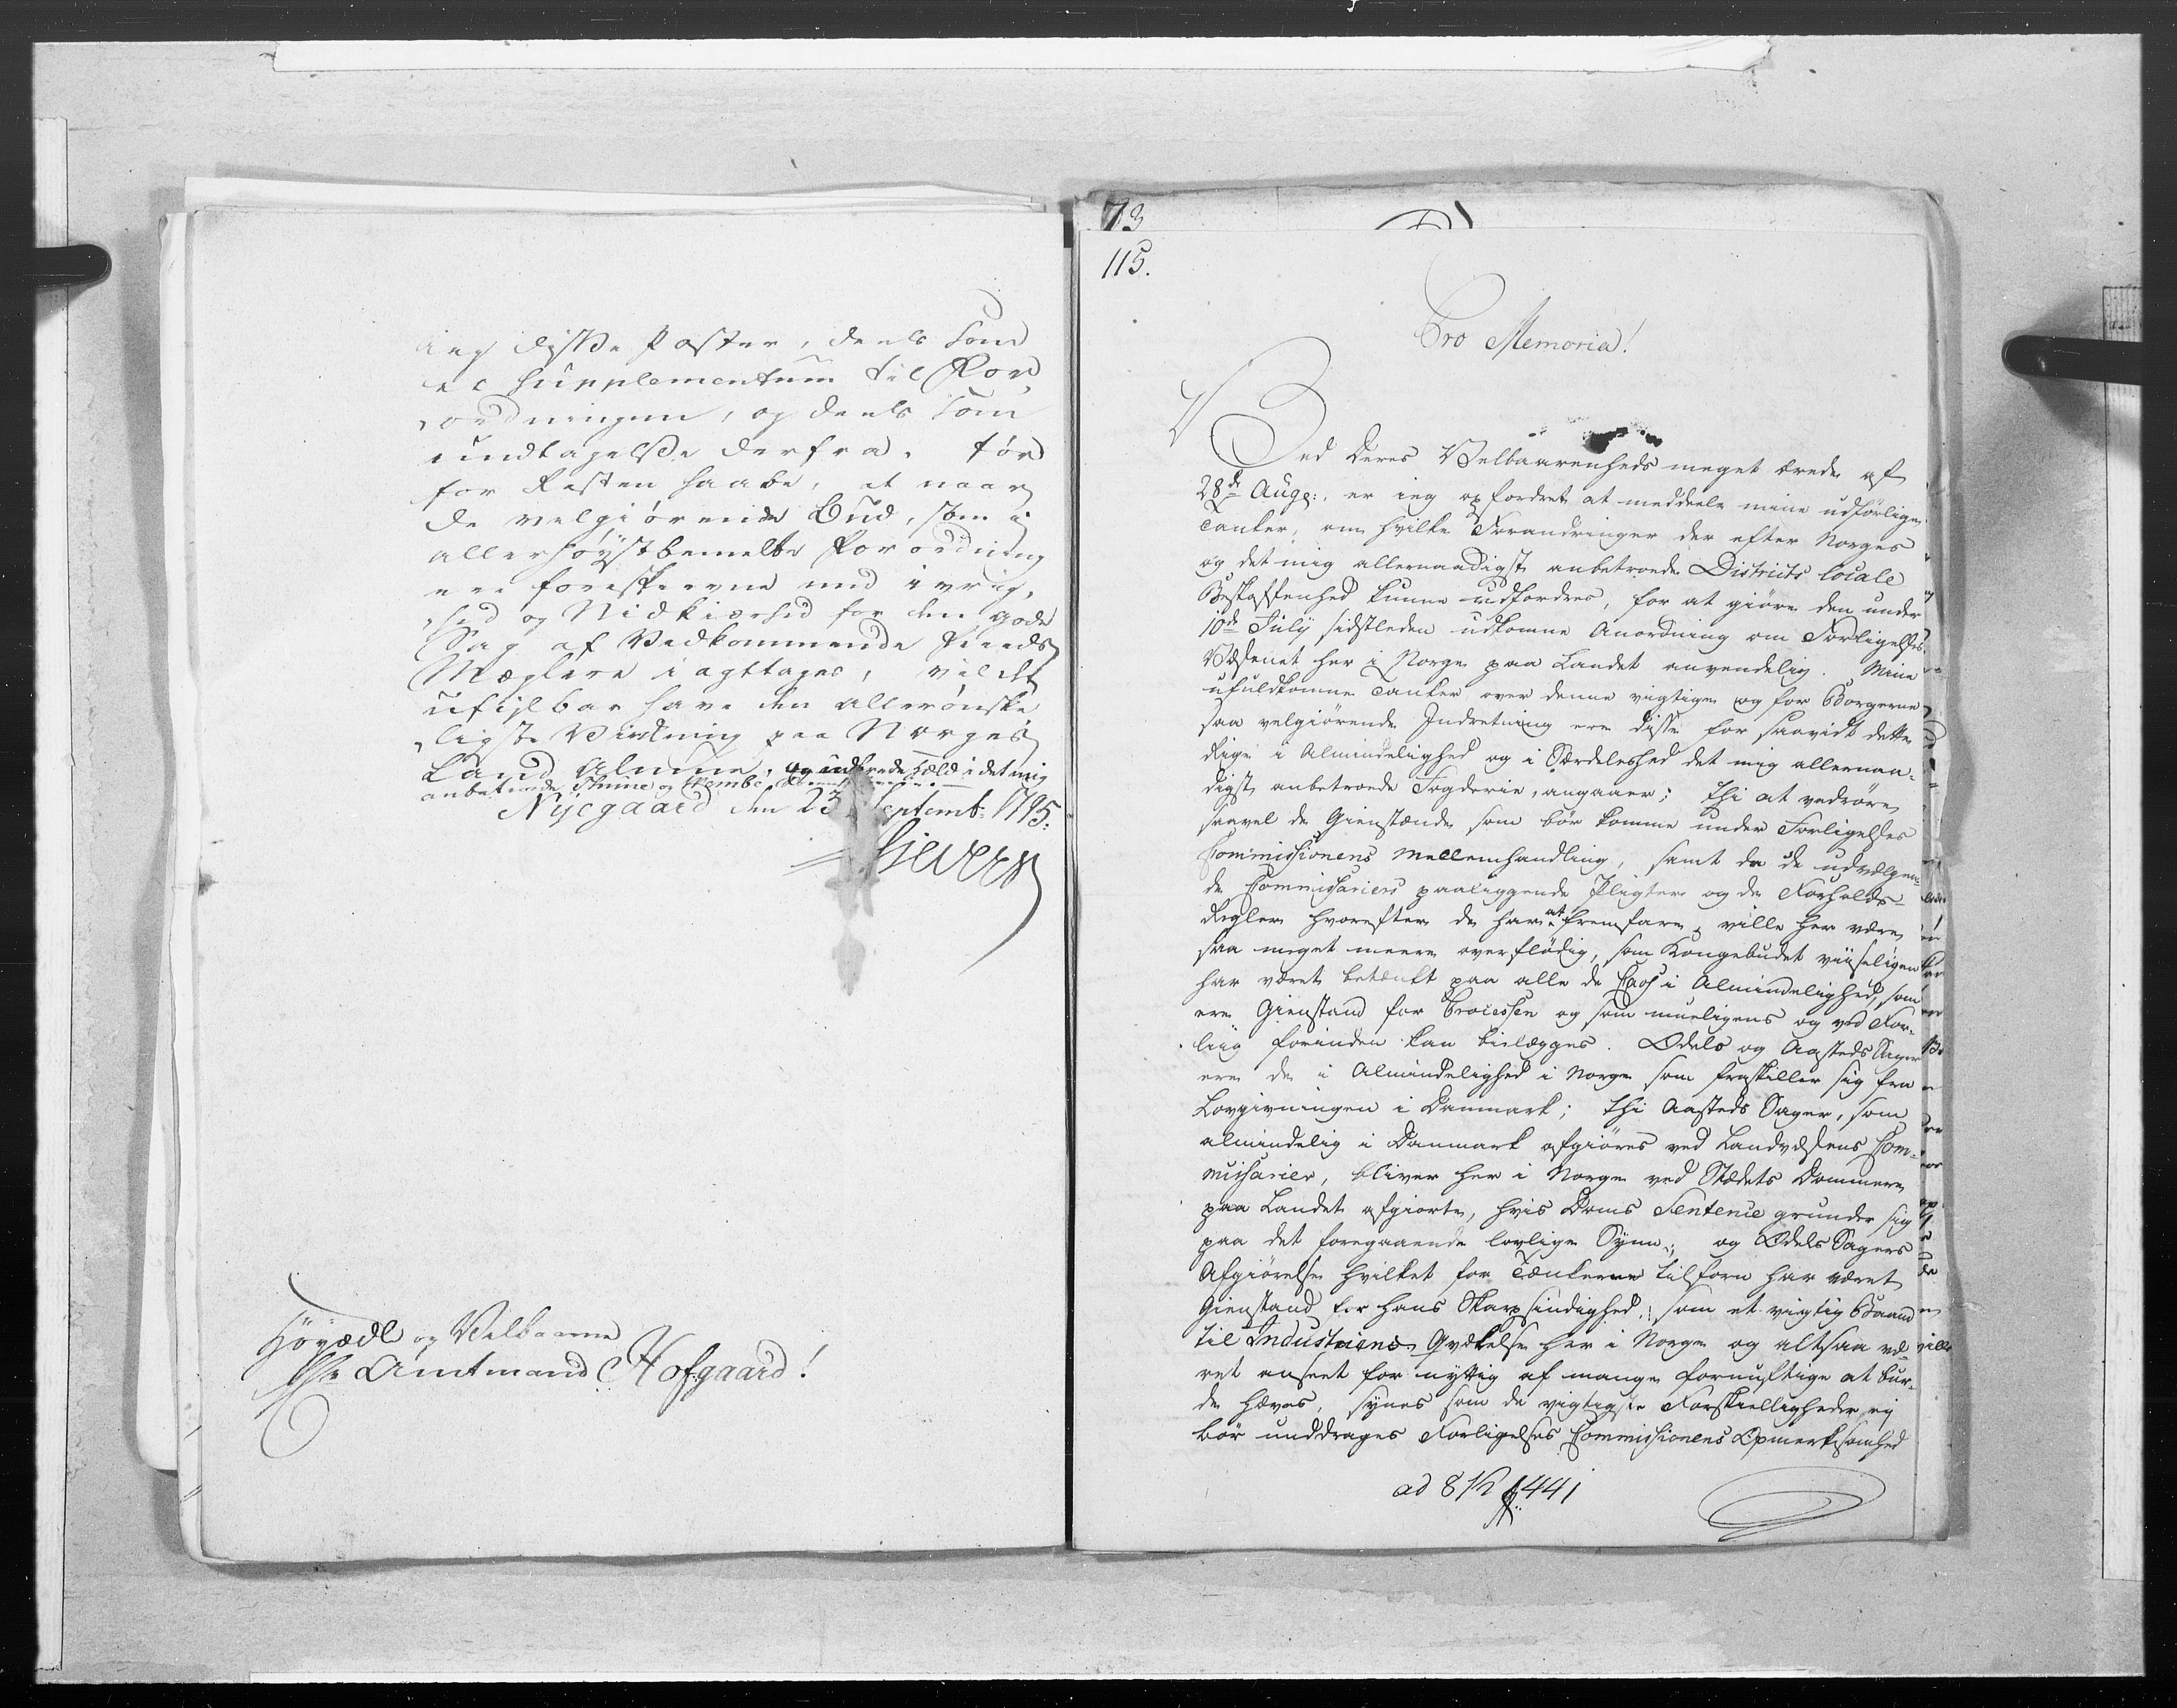 ieg disse Poster, deels som
et Supplementum til For-
ordningen, og deels som
undtagelse derfra. tør
for Resten haabe, at naar
de velgiørende Bud, som i
allerhøystbemelte Forordning
ere foreskrevne med ivrig-
hed og Nidkiærhed for den gode
Sag af Vedkommende Freds
Mæglere iagttages, vil det
ufeylbar have den allerønske-
ligste Virkning paa Norges
Land Almue, og i det mig
anbetroede
Nyegaard den 23 Septemb: 1795.
Sievers
Høyædle og Velbaarne
Hr Amtmand Hofgaard!
73
115.
Pro Memoria!
Ved Deres Velbaarenheds meget ærede af
28de Aug:, er ieg opfordret at meddeele mine udførlige
Tanker, om hvilke Forandringer der efter Norges
og det mig allernaadigst anbetroede Districts locale
Beskaffenhed kunne udfordres, for at giøre den under
10de July sidstleden udkomne Anordning om Forligelses
Væsenet her i Norge paa Landet anvendelig. Mine
ufuldkomne Tanker over denne vigtige og for Borgerne
saa velgiørende Indretning ere disse for saavidt dette
Rige i Almindelighed og i Særdeleshed det mig allernaa-
digst anbetroede Fogderie, angaaer; thi at vedrøre
saavel de Gienstande som bør komme under Forligelses
Commissionens Mellemhandling, samt da de udvælgen-
de Commissariers paaliggende Pligter og de Forholds-
Regler hvorefter de har at fremfare, ville her være
saa meget meere overflødig, som Kongebudet viiseligen
har været betænkt paa alle de Caos i Almindelighed, som
ere Gienstand for Processen og som mueligens og ved For-
liig forinden kan bielægges. Odels og Aasteds Sager
ere de i Almindelighed i Norge som fraskiller sig fra
Lovgivningen i Danmark; thi Aasteds Sager, som
almindelig i Danmark afgiøres ved Landvæsens Com-
missarier, bliver her i Norge ved Stædets Dommere
paa Landet afgiorte, hvis Doms Sentence grunder sig
paa det foregaaende lovlige Syn; og Odels Sagers
Afgiørelse hvilket for Tænkeren tilforn har været
Gienstand for hans Skarpsindighed, som et vigtig Baand
til Industriens Qvækelse her i Norge og altsaa væ-
ret anseet for nyttig af mange fornuftige at bur-
de hæves, synes som de vigtigste Forskielligheder ej
bør unddrages Forligelses Commissionens Opmerksomhed
ad 8 1/2 441